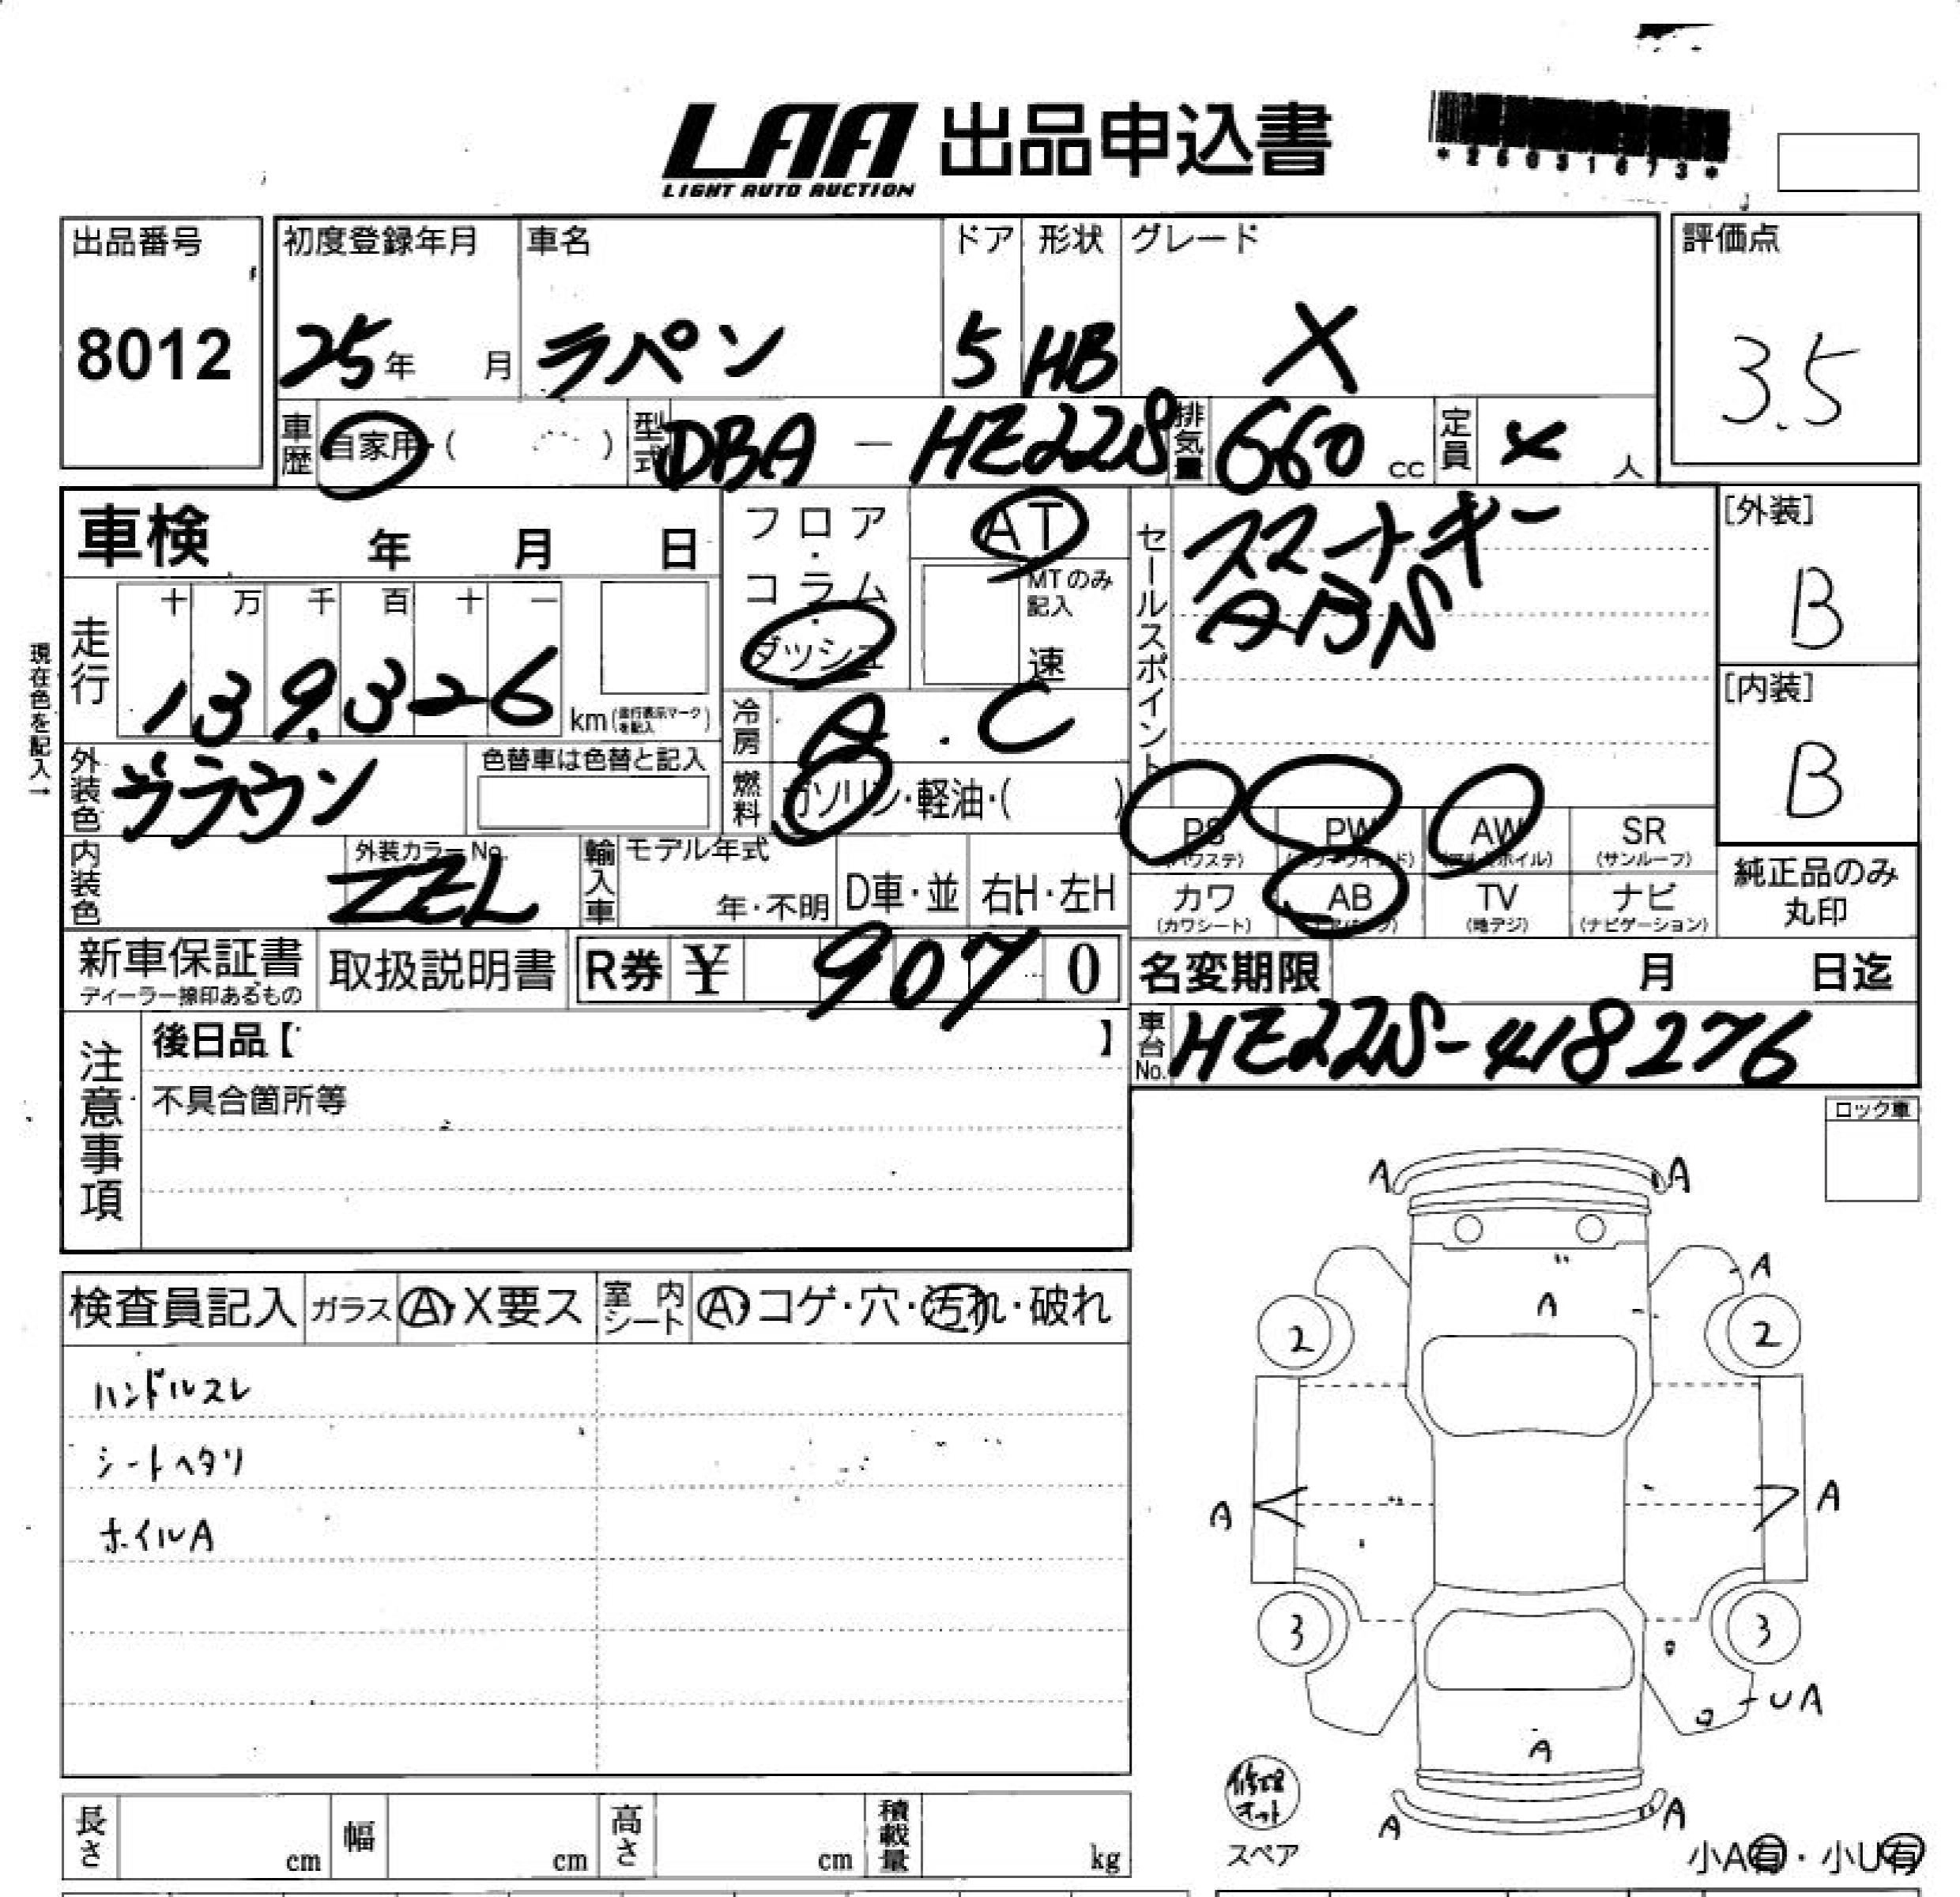 LAA 出品申込書
LIGHT AUTO AUCTION
出品番号 初度登録年月 車名 ドア 形状 グレード 評価点
8012 25年 月 ラパン 5 HB X 3.5
車歴 自家用・( ) 型式 DBA - HE22S 排気量 660 cc 定員 4 人
車検 年 月 日
フロア・コラム・ダッシュ
AT
MTのみ記入
速
セールスポイント
スマートキー
ABS
[外装]
B
[内装]
B
走行 十 万 千 百 十 一
139.326 km (走行表示マークを記入)
現在色を記入→
冷房 A.C
外装色 ブラウン 色替車は色替と記入
燃料 ガソリン・軽油・( )
PS (パワステ) PW (パワーウィンド) AW (アルミホイル) SR (サンルーフ)
カワ (カワシート) AB (エアバッグ) TV (地デジ) ナビ (ナビゲーション)
純正品のみ丸印
内装色 外装カラーNo. ZEL 輸入車 モデル年式 年・不明 D車・並 右H・左H
新車保証書 ディーラー捺印あるもの 取扱説明書 R券 ¥ 907 0 名変期限 月 日迄
注意事項 後日品【 】
車台No. HE22S-418276
不具合箇所等
ロック車
検査員記入 ガラス A・X要ス 室内シート A・コゲ・穴・汚れ・破れ
ハンドルスレ
シートヘタリ
ホイルA
A A
A
A
2 2
A A
3 3
UA
A
A A
修理キット
スペア
小A有・小U有
長さ cm 幅 cm 高さ cm 積載量 kg